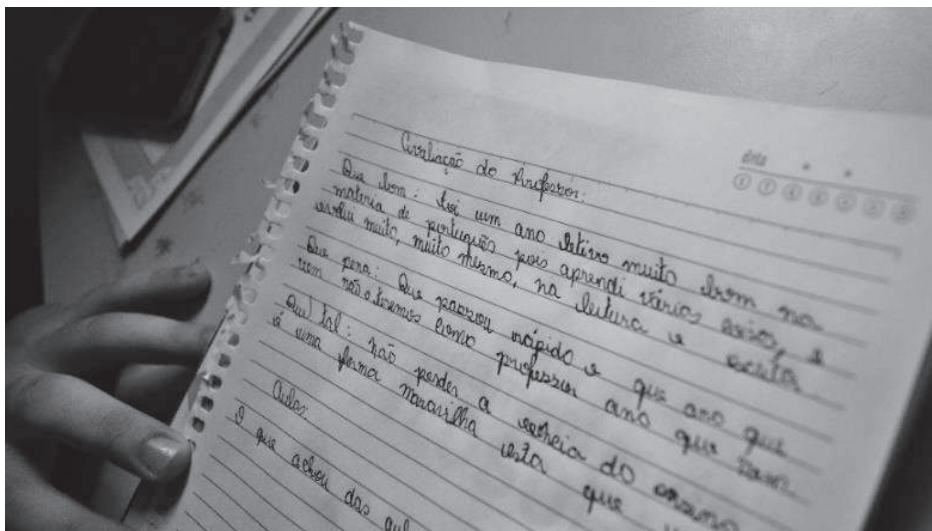 Avaliação do Professor:
data
Que bom: foi um ano letivo muito bom na
matéria de português pois aprendi várias coisas, e
evolui muito, muito mesmo, na leitura e escrita.
Que pena: Que passou rápido e que ano que
vem não o teremos como professor ano que vem
Que tal: não perder a do ensino
é uma forma maravilha esta que
Aulas:
O que achou das aul